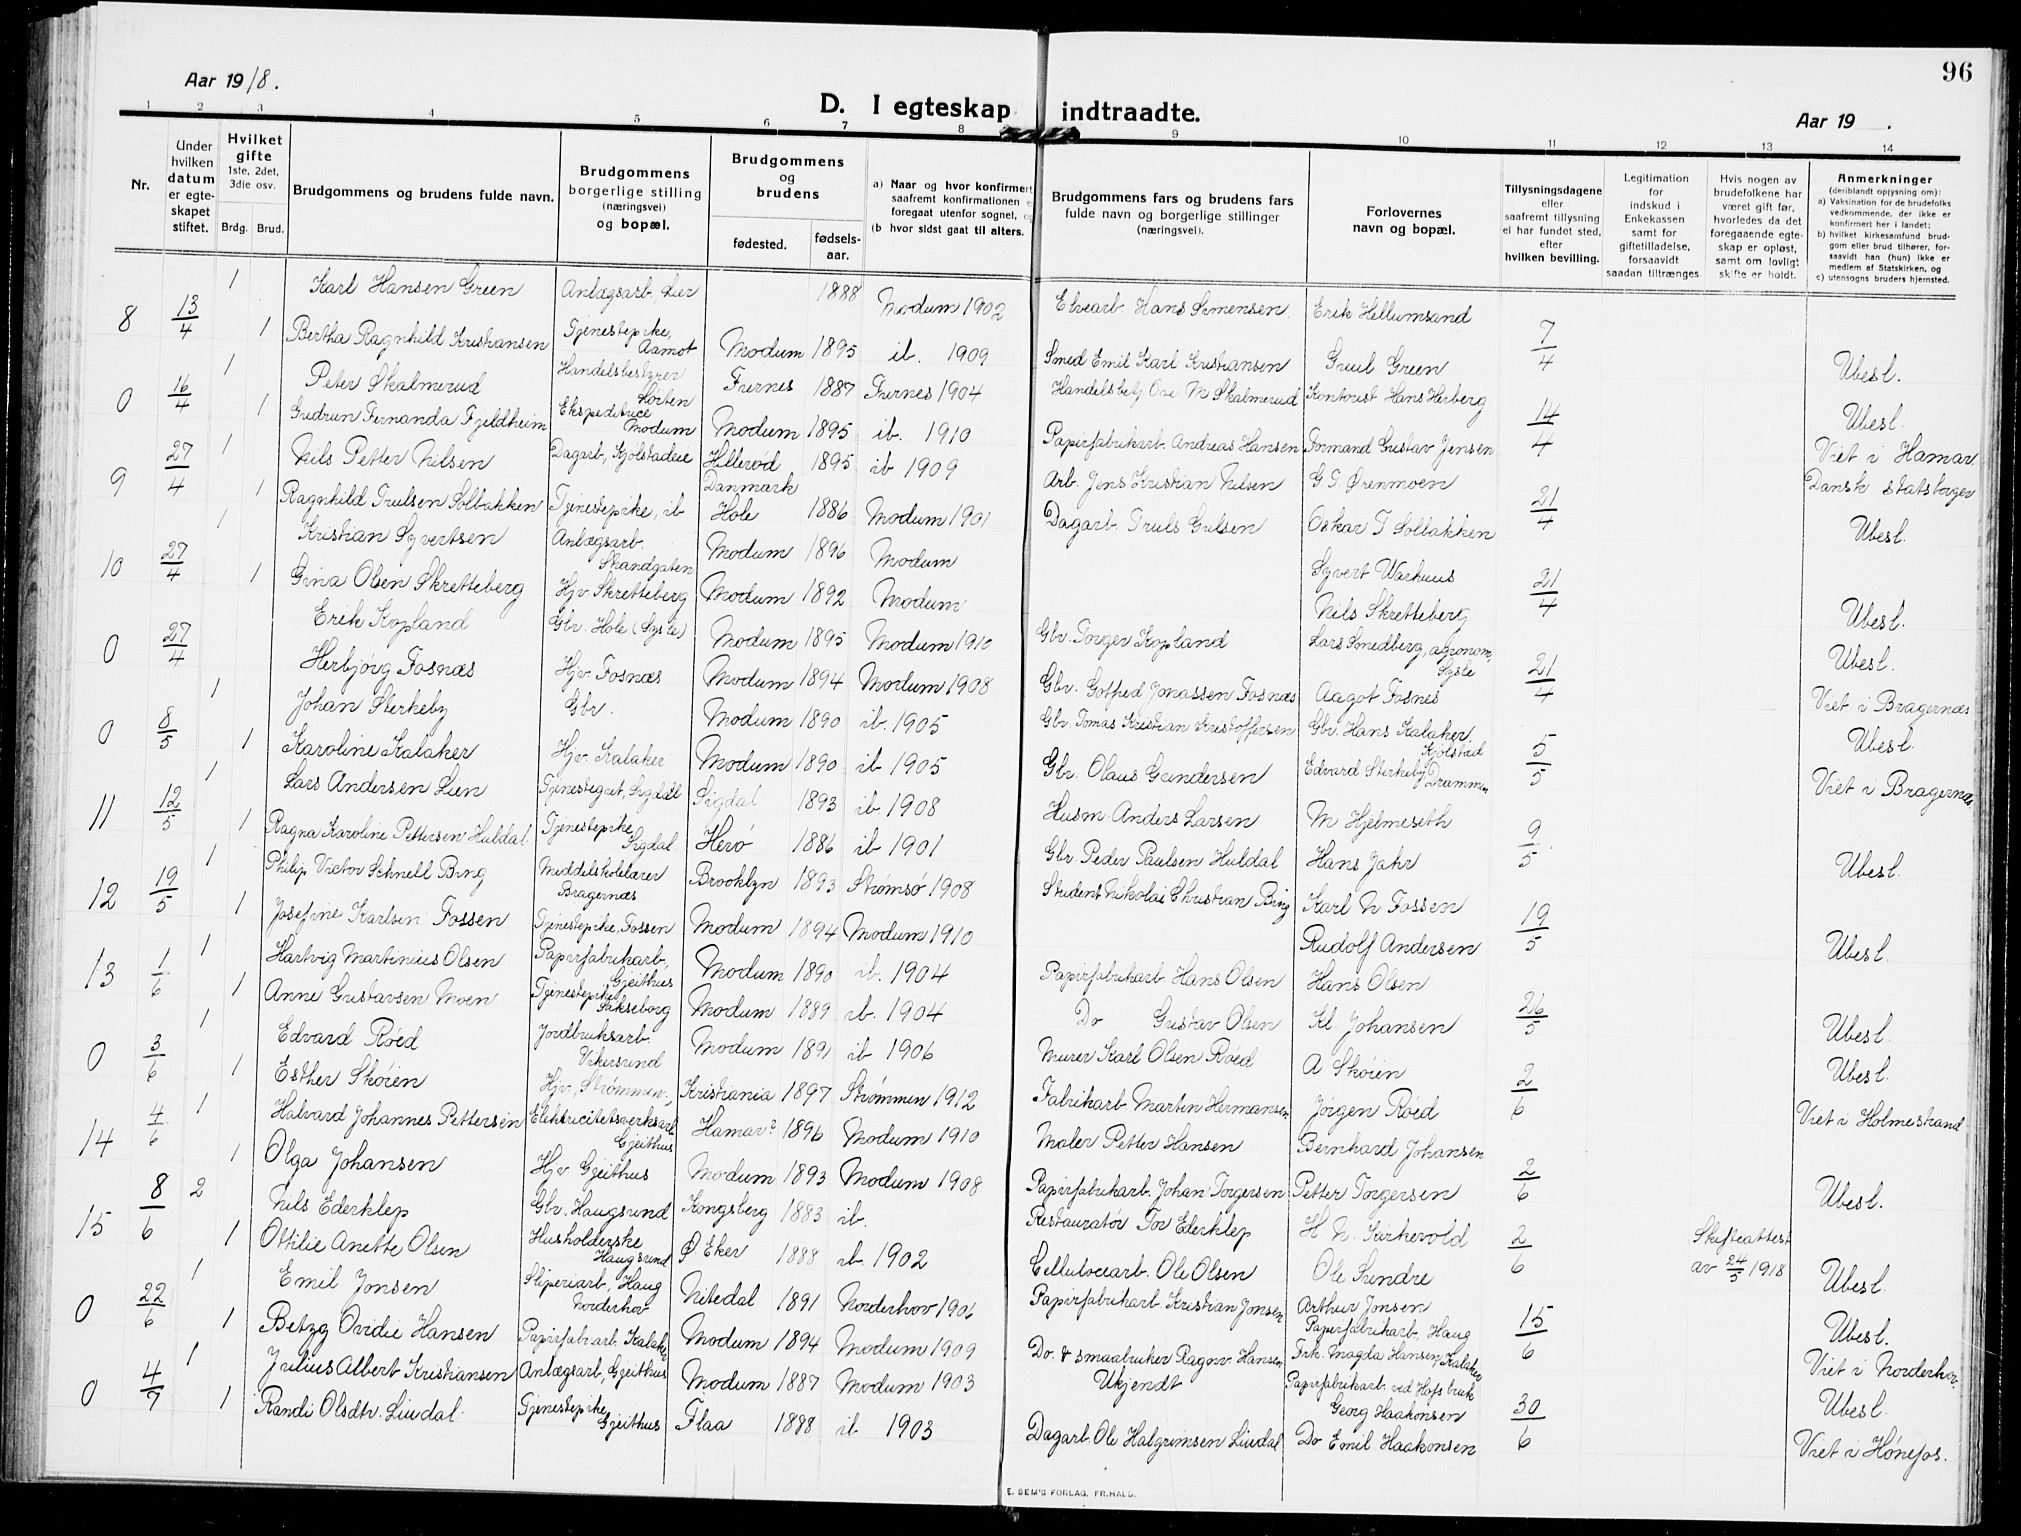 Aar 1918.
D. I egteskap indtraadte.
Aar 19 .
96
1 2 3 4 5 6 7 8 9 10 11 12 13 14
Nr.
Under hvilken datum er egteskapet stiftet.
Hvilket gifte 1ste, 2det, 3die osv.
Brdg. Brud.
Brudgommens og brudens fulde navn.
Brudgommens borgerlige stilling (næringsvei) og bopæl.
Brudgommens og brudens
fødested. fødselsaar.
a) Naar og hvor konfirmert saafremt konfirmationen foregaat utenfor sognet,
(b hvor sidst gaat til alters.
Brudgommens fars og brudens fars fulde navn og borgerlige stillinger (næringsvei).
Forlovernes navn og bopæl.
Tillysningsdagene eller saafremt tillysning ei har fundet sted, efter hvilken bevilling.
Legitimation for indskud i Enkekassen samt for giftetilladelse, forsaavidt saadan tiltrænges.
Hvis nogen av brudefolkene har været gift før, hvorledes da det foregaaende egteskap er opløst, samt om lovligt skifte er holdt.
Anmerkninger (deriblandt oplysning om):
a) Vaksination for de brudefolks vedkommende, der ikke er konfirmert her i landet;
b) hvilket kirkesamfund brudgom eller brud tilhører, forsaavidt han (hun) ikke er medlem af Statskirken, og
c) utensogns bruders hjemsted.
8 13/4 1 Karl Hansen Green Anlægsarb, Lier 1888 Modum 1902 Elvearb. Hans Simensen Erik Hellumsand 7/4
1 Bertha Ragnhild Kristiansen Tjenestepike, Aamot Modum 1895 ib. 1909 Smed Emil Karl Kristiansen Guul Green Ubesl.
0 16/4 1 Peter Skalmerud Handelsbestyrer Furnes 1887 Furnes 1904 Handelsbetj. Ove M Skalmerud Kontorist Hans Herberg 14/4
1 Gudrun Fernanda Fjeldheim Ekspeditrice Modum Modum 1895 ib. 1910 Papirfabrikarb. Andreas Hansen Formand Gustav Jensen Ubesl. Viet i Hamar.
9 27/4 1 Nils Petter Nilsen Dagarb, Kjølstadeie Hillerød Danmark 1895 ib 1909 Arb. Jens Kristian Nilsen G T Ørenmoen 21/4 Dansk statsborger
1 Ragnhild Trulsen Solbakken Tjenestepike, ib Hole 1886 Modum 1901 Dagarb. Truls Gulsen Oskar T Solbakken Ubesl.
10 27/4 1 Kristian Syvertsen Anlægsarb. Skandgaten Modum 1896 Modum Syvert Warhuus 21/4
1 Gina Olsen Skretteberg Hjv Skretteberg Modum 1892 Modum Nils Skretteberg Ubesl.
0 27/4 Erik Kopland Gbr. Hole (Sysle) Modum 1895 Modum 1910 Gbr. Torger Kopland Lars Smedberg, agronom, Sysle 21/4 Ubesl.
Herbjørg Fosnæs Hjv Fosnæs Modum 1894 Modum 1908 Gbr. Gothed Jonassen Fosnæs Aagot Fosnes Viet i Bragernæs
0 8/5 1 Johan Sterkeby Gbr. Modum 1890 ib. 1905 Gbr. Tomas Kristian Kristoffersen Gbr. Hans Kalaker Kjølstad 5/5 Ubesl.
1 Karoline Kalaker Hjv. Kalaker Modum 1890 ib 1905 Gbr. Olaus Gundersen Edvard Sterkeby Drammen Viet i Bragernæs
11 12/5 1 Lars Andersen Lien Tjenestegut, Sigdal Sigdal 1893 ib 1908 Husm Anders Larsen M Hjelmeseth 9/5
1 Ragna Karoline Pettersen Huldal Tjenestepike Sigdal Herø 1886 ib 1901 Gbr Peder Paulsen Huldal Hans Jahr Ubesl.
12 19/5 1 Philip Victor Schnell Bing Middelskolelærer Bragernæs Brooklyn 1893 Strømsø 1908 Student Nikolai Christian Bing Karl N Fossen 19/5
1 Josefine Karlsen Fossen Tjenestepike, Fossen Modum 1894 Modum 1910 Rudolf Andersen Ubesl.
13 1/6 1 Hartvig Martinius Olsen Papirfabrikarb, Gjeithus Modum 1890 ib. 1904 Papirfabrikarb Hans Olsen Hans Olsen 26/5
1 Anne Gustavsen Moen Tjenestepike Sakseborg Modum 1889 ib. 1904 Do Gustav Olsen Kl. Johansen Ubesl.
0 3/6 1 Edvard Røed Jordbruksarb. Vikersund Modum 1891 ib 1906 Murer Karl Olsen Røed A Skøien 2/6 Ubesl.
1 Esther Skøien Hjv, Strømmen, Kristiania 1897 Strømmen 1912 Fabrikarb Martin Hermansen Jørgen Røed Viet i Holmestrand
14 4/6 1 Halvard Johannes Pettersen Elektricitetsverksarb Gjeithus Hamar? 1896 Modum 1910 Maler Petter Hansen Bernhard Johansen 2/6
1 Olga Johansen Hjv Gjeithus Modum 1893 Modum 1908 Papirfabrikarb. Johan Torgersen Petter Torgersen Ubesl.
15 8/6 2 Nils Ederklep Gbr. Haugsund Kongsberg 1883 ib. Restauratør Tor Ederklep H. N. Kirkevold 2/6 Skifteattest
1 Ottilie Anette Olsen Husholderske Haugsund Ø Eker 1888 ib 1902 Cellulocearb. Ole Olsen Ole Sundre av 24/5 1918 Ubesl.
0 22/6 1 Emil Jonsen Sliperiarb, Haug Norderhov Nitedal 1891 Norderhov 1906 Papirfabrikarb Kristian Jonsen Arthur Jonsen Papirfabrikarb, Haug 15/6 Ubesl.
1 Betzy Ovidie Hansen Papirfabr arb. Kalaker Modum 1894 Modum 1909 Do. & smaabruker Ragnv. Hansen Frk. Magda Hansen, Kalaker Viet i Norderhov.
0 4/7 1 Julius Albert Kristiansen Anlægsarb, Gjeithus Modum 1887 Modum 1903 Ukjendt Papirfabrikarb ved Hofs bruk Georg Haakonsen 30/6 Ubesl.
1 Randi Olsdtr. Liudal. Tjenestepike Gjeithus Flaa 1888 ib 1903 Dagarb Ole Halgrimsen Liudal Do Emil Haakonsen Viet i Hønefos.
E. SEM'S FORLAG, FR.HALD.